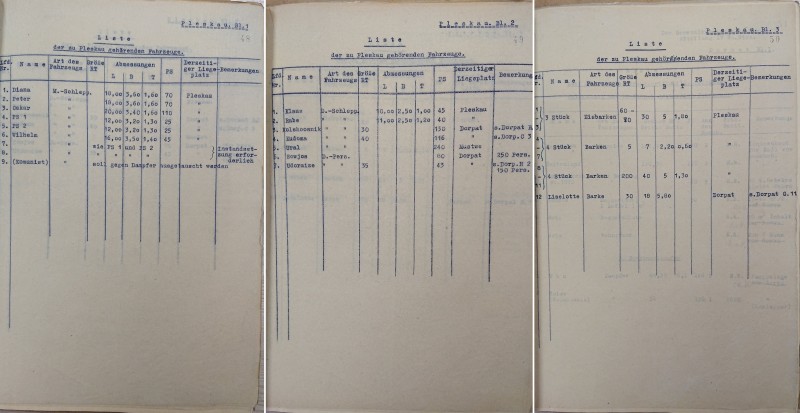 Pleskau. Bl.1
Liste
der zu Pleskau gehörenden Fahrzeuge.
Lfd. Nr. Name Art des Fahrzeugs Größe RT Abmessungen L B T PS Derzeitiger Liegeplatz Bemerkungen
1. Diana M.-Schlepp. 10,00 3,60 1,60 70 Pleskau
2. Peter " 10,00 3,60 1,60 70 "
3. Oskar " 20,00 3,40 1,60 110 "
4. PS 1 " 12,00 3,20 1,30 25 "
5. PS 2 " 12,00 3,20 1,30 25 "
6. Wilhelm " 16,00 3,50 1,40 45 "
7. " wie PS 1 und PS 2 Instandset-
8. " " " " " zung erfor-
9. (Kommnist) " soll gegen Dampfer umgetauscht werden derlich
Pleskau. Bl.2
Liste
der zu Pleskau gehörenden Fahrzeuge.
Lfd. Nr. Name Art des Fahrzeugs Größe RT Abmessungen L B T PS Derzeitiger Liegeplatz Bemerkung
1. Klaus D.-Schlepp. 10,00 2,50 1,00 45 Pleskau
2. Rabe " " 11,00 2,50 1,20 40 "
3. " " 30 150 Dorpat s.Dorpat
4. " " 40 116 " s.Dorp.C 3
5. Ural " " 240
D.-Pers. 60 Dorpat 250 Pers.
7. Udarnize " " 35 45 " s.Dorp.B 2
150 Pers.
Pleskau. Bl.3
Liste
der zu Pleskau gehörenden Fahrzeuge.
Lfd. Nr. Name Art des Fahrzeugs Größe RT Abmessungen L B T PS Derzeitiger Liegeplatz Bemerkungen
3 Stück Eisbarken 60-70 30 5 1,80 Pleskau
4 Stück Barken 5 7 2,20 0,60 "
4 Stück Barken 200 40 5 1,30 "
12 Liselotte Barke 30 18 Dorpat s.Dorpat G.11